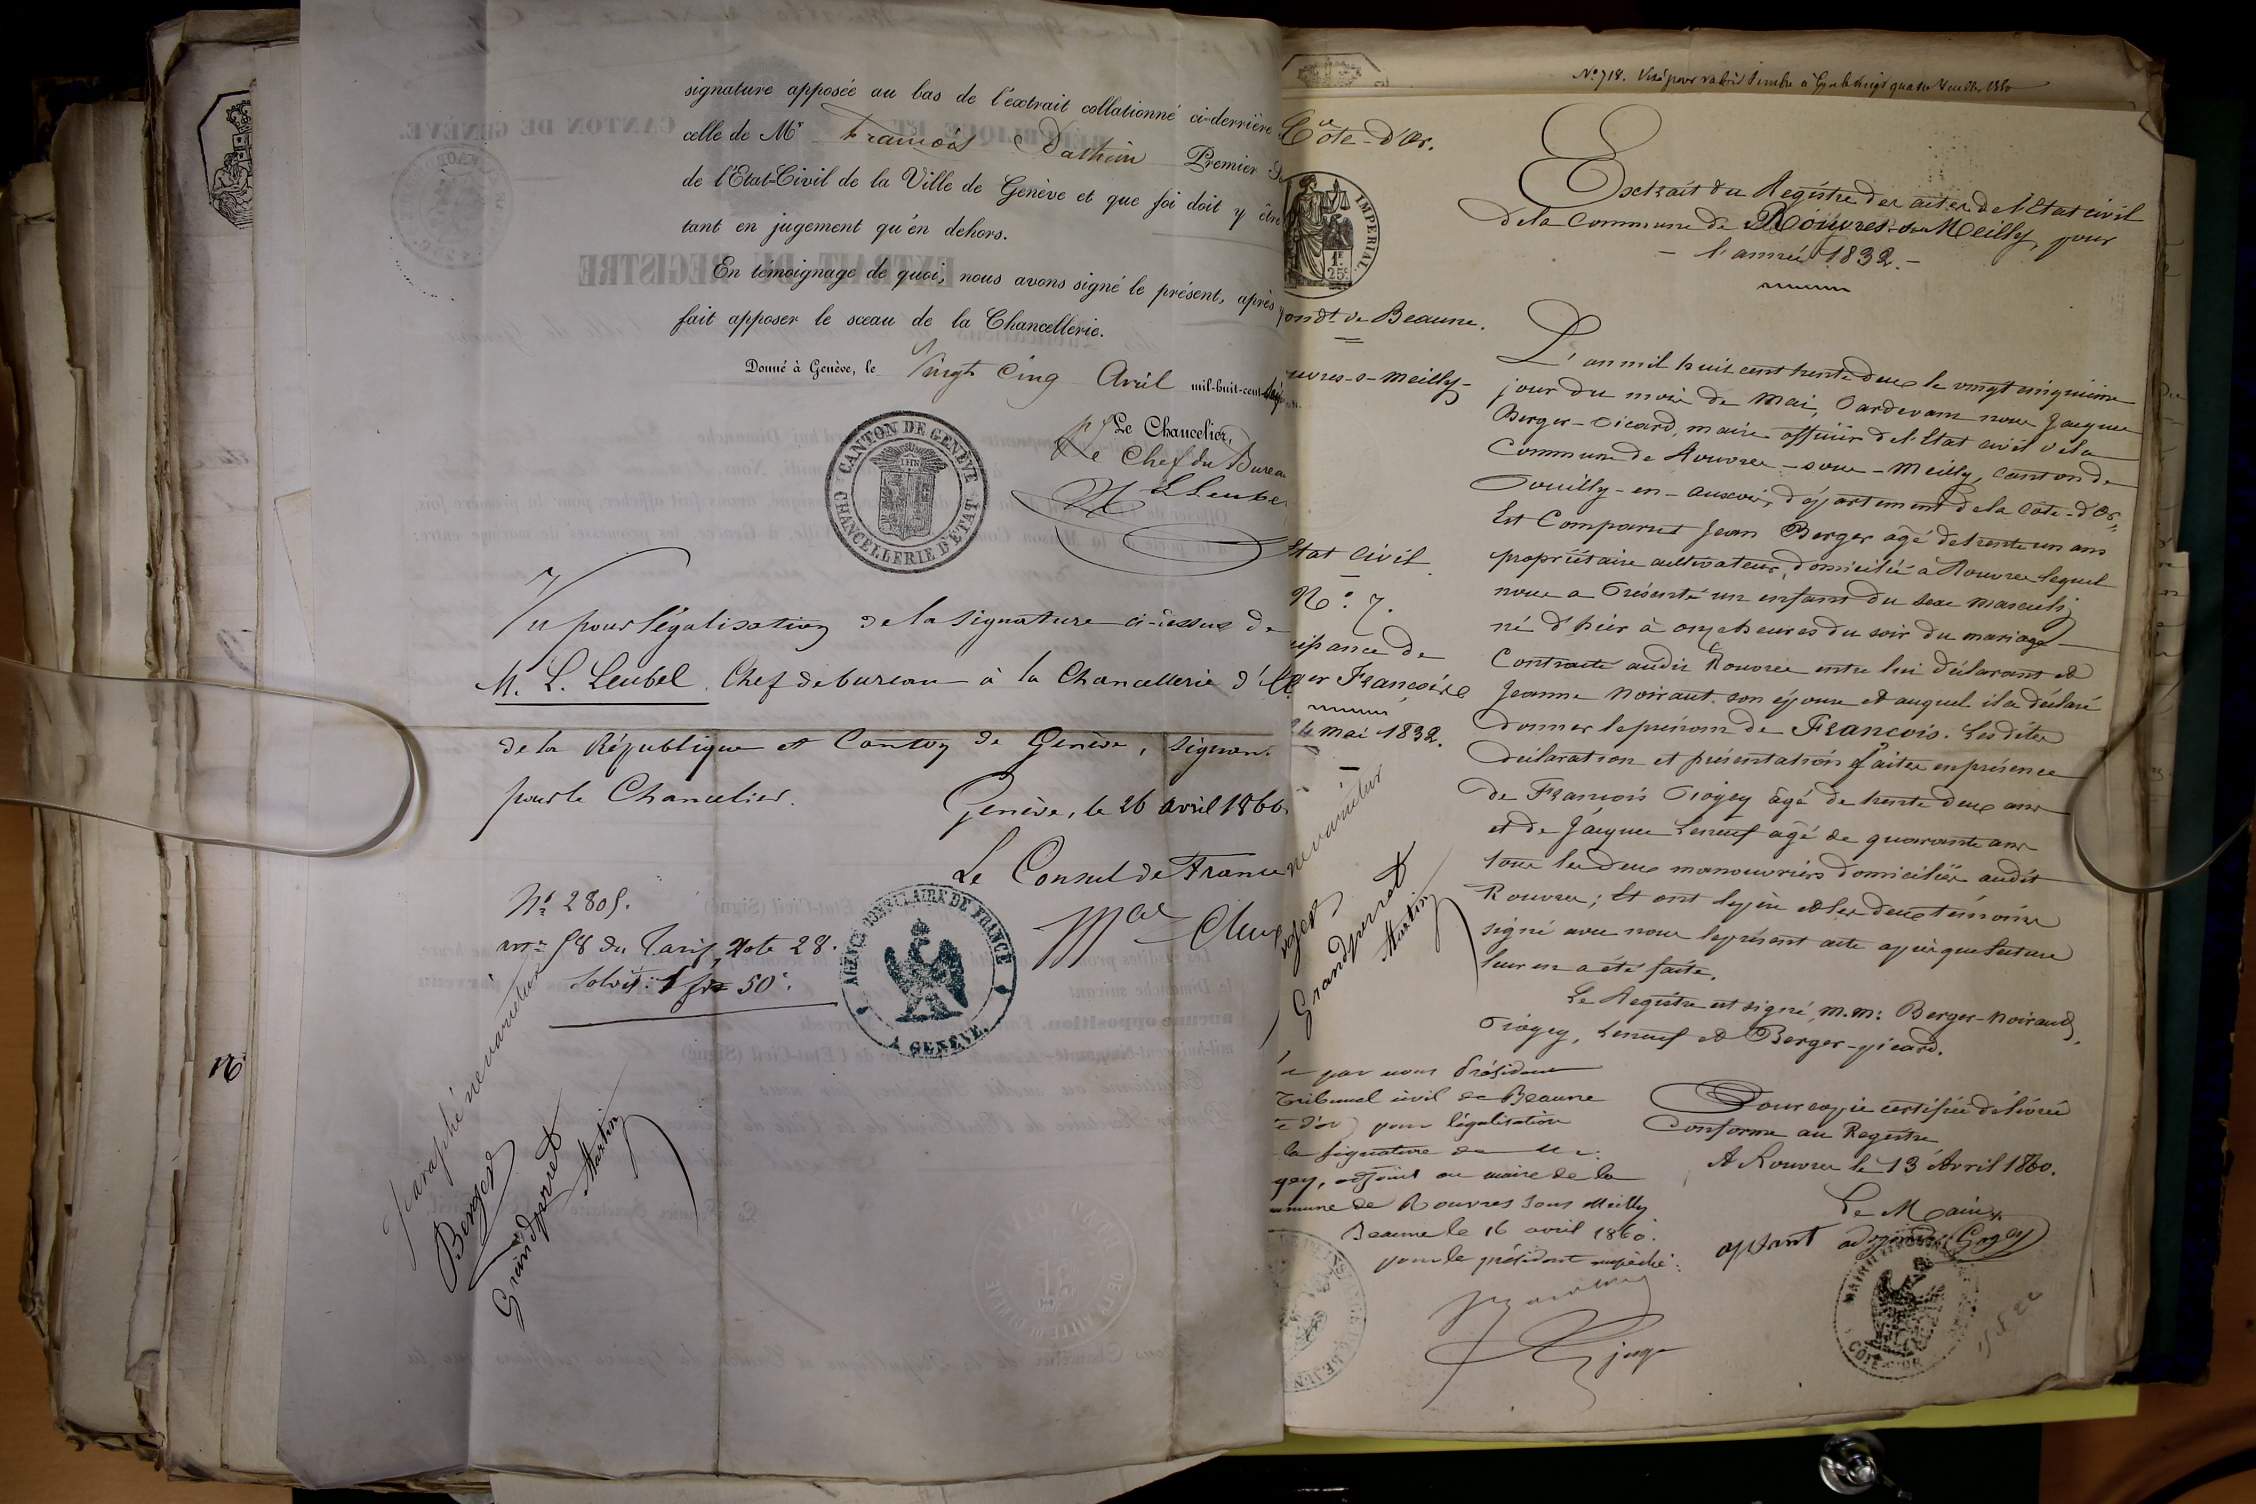 signature apposée au bas de l'extrait collationné ci-derrière
celle de Mr François Dathein Premier
de l'Etat-Civil de la Ville de Genève et que foi doit y être
tant en jugement qu'en dehors.
En témoignage de quoi, nous avons signé le présent, après
fait apposer le sceau de la Chancellerie.
Donné à Genève, le Vingt Cinq Avril mil-huit-cent
Le Chancelier,
Le Chef du Bureau
CANTON DE GENÈVE
CHANCELLERIE D'ÉTAT
Vu pour légalisation de la signature ci-dessus de
M. L. Leubel, Chef de bureau à la Chancellerie d'
de la République et Canton de Genève, signant
pour le Chancelier.
Genève, le 26 avril 1860.
Le Consul de France
No 2805.
58 du Tarif, Note 28.
Soldt: 1 fr 50c.
AGENCE CONSULAIRE DE FRANCE
A GENÈVE.
Paraphé ne varietur
Berger
Grandperret
Martin
No 718. Visé pour valoir timbre à
Côte-d'Or.
IMPERIAL
1F
25c
ondt de Beaune.
uvres-s-Meilly-
Etat Civil
No. 7.
de
ger François
24 mai 1832.
ne varietur
Grandperret
Martin
Extrait du Registre des actes de l'Etat civil
de la Commune de Rouvres-sous-Meilly, pour
- l'année 1832. -
L'an mil huit cent trente deux le vingt cinquième
jour du mois de Mai, Pardevant nous Jacques
Berger-Picard, maire officier de l'Etat civil de la
Commune de Rouvres-sous-Meilly, canton de
Pouilly-en-auxois, département de la Côte-d'Or,
Est Comparu Jean Berger âgé de trente un ans
propriétaire cultivateur, domicilié à Rouvres lequel
nous a Présenté un enfant du sexe masculin
né d'hier à onze heures du soir du mariage
Contracté audit Rouvres entre lui déclarant et
Jeanne Noiraut son épouse et auquel il a déclaré
donner le prénom de François. Les dites
déclaration et présentation faites en présence
de François Piogey âgé de trente deux ans
et de Jacques Leneuf âgé de quarante ans
tous les deux manouvriers domiciliés audit
Rouvres; Et ont le père et les deux témoins
signé avec nous le présent acte après que lecture
leur en a été faite.
Le Registre est signé, M.M: Berger-Noiraud,
Piogey, Leneuf et Berger-picard.
Pour copie certifiée délivrée
Conforme au Registre
A Rouvres le 13 Avril 1860.
Le Maire
MAIRIE
CÔTE-D'OR
par nous Président
Tribunal civil de Beaune
d'or) pour légalisation
la signature de Mr.
gey, adjoint au maire de la
mmune de Rouvres sous Meilly
Beaune le 16 avril 1860.
pour le président empêché:
juge